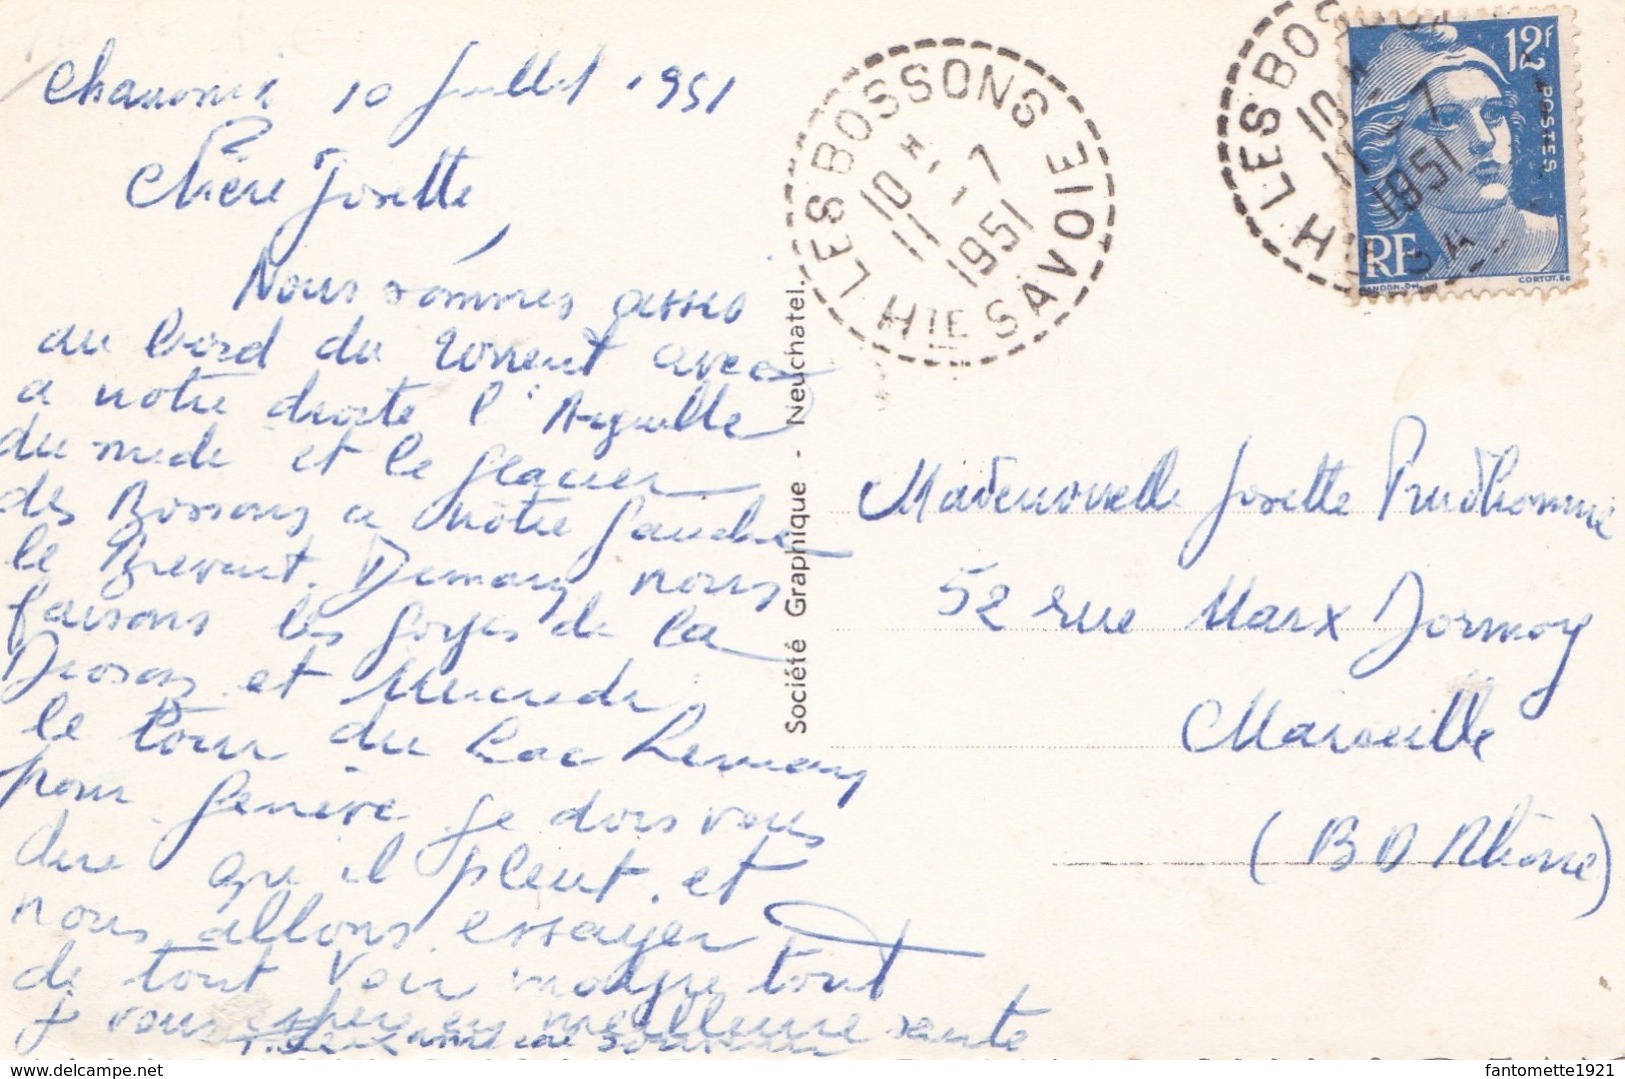 Chamonix 10 Juillet 1951
Chère Josette
Nous sommes assis
au bord du torrent avec
a notre droite l'Aiguille
du midi et le glacier
des Bossons a notre gauche
le Brevent. Demain nous
faisons les gorges de la
Diosaz et Mercredi
le tour du Lac Leman
pour Genève je dois vous
dire qu'il pleut et
nous allons essayer
de tout voir malgre tout
je vous espère en meilleure sante
Société Graphique - Neuchatel.
LES BOSSONS
HTE SAVOIE
10 H.
7
1951
LES BOSSONS
HTE SA
10 H
7
1951
12F
POSTES
RF
GANDON.DEL
CORTOT.SC
Mademoiselle Josette Prudhomme
52 rue Marx Dormoy
Marseille
(B D Rhône)
fantomette1921
delcampe.net